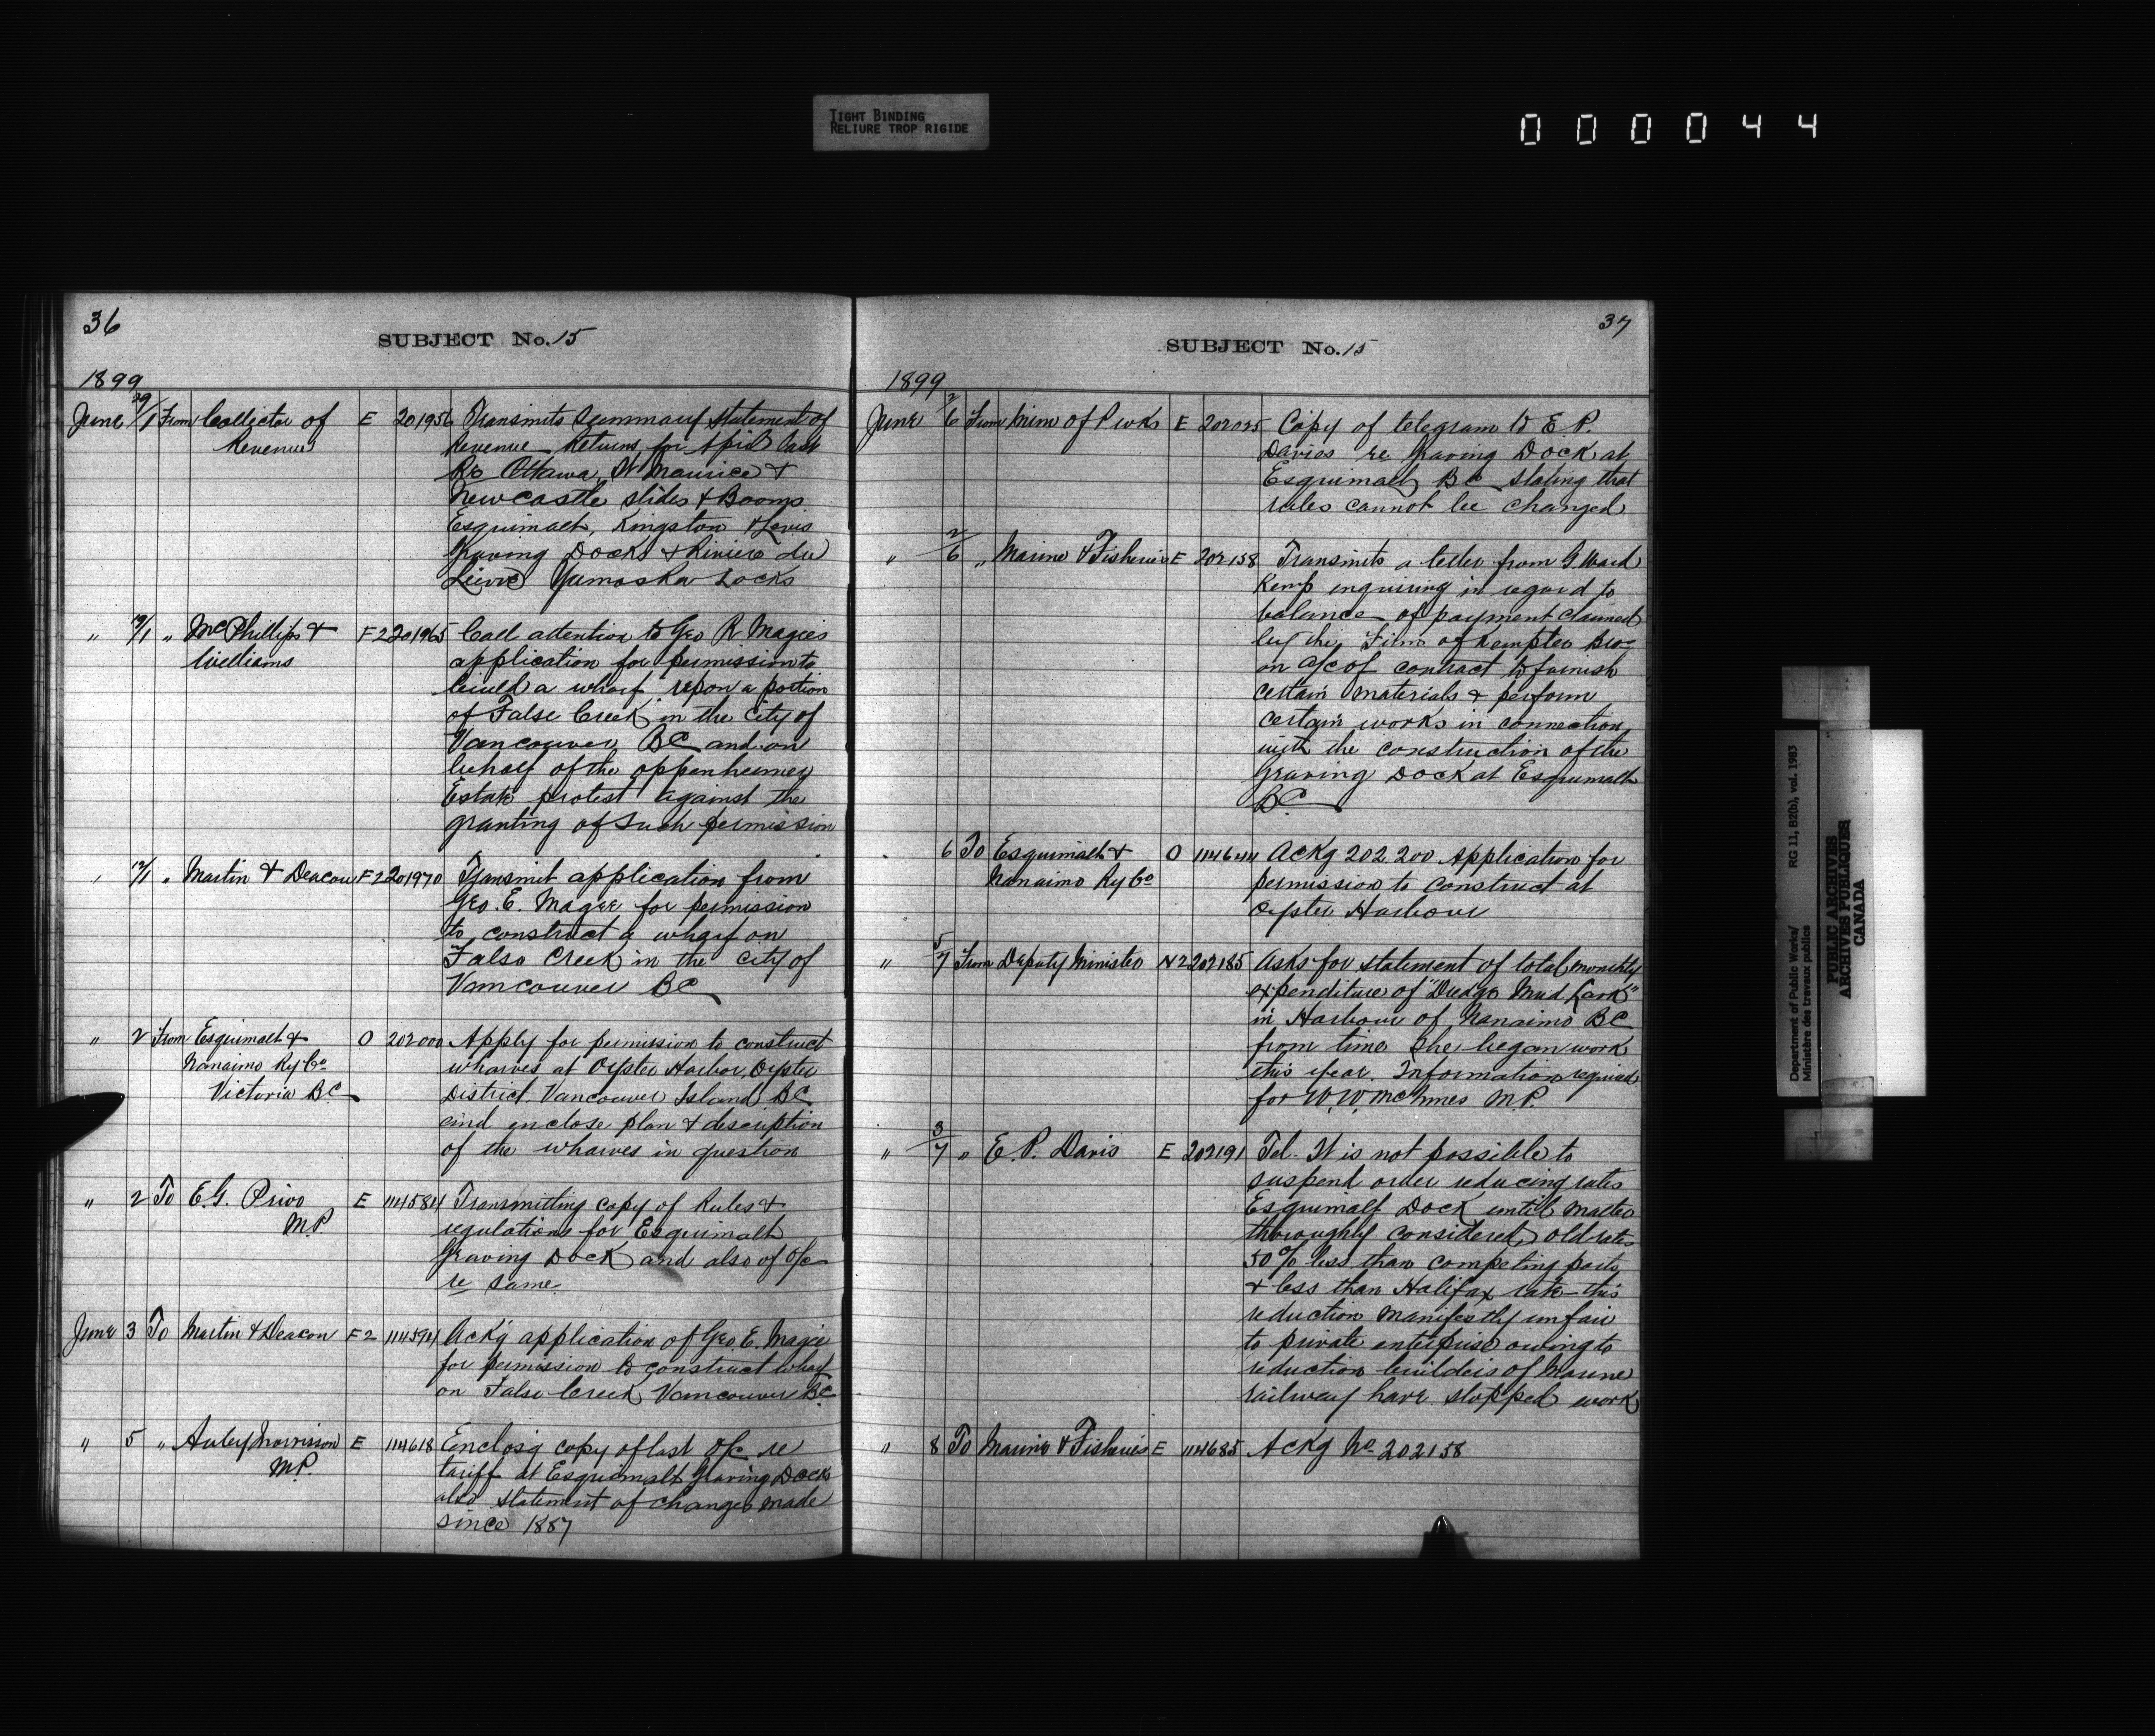 TIGHT BINDING
RELIURE TROP RIGIDE
000044
36
SUBJECT No. 15
1899
June 29/1 From Collector of Revenue E 201956 Transmits Summary Statement of
Revenue Returns for April last
Re Ottawa, St Maurice &
Newcastle slides & Booms
Esquimalt, Kingston & Levis
Graving Docks & Riviere du
Lievre Yamaska Locks
" /1 " McPhillips & Williams F2 201965 Call attention to Geo R Magees
application for permission to
build a wharf upon a portion
of False Creek in the City of
Vancouver BC and on
behalf of the Oppenheimer
Estate protest against the
granting of Such permission
" /1 " Martin & Deacon F2 201970 Transmit application from
Geo. E. Magee for permission
to construct a wharf on
False Creek in the City of
Vancouver BC
" 2 From Esquimalt & Nanaimo Ry Co Victoria BC O 202000 Apply for permission to construct
wharves at Oyster Harbor, Oyster
District Vancouver Island BC
and enclose plan & description
of the wharves in question
" 2 To E.G. Prior M.P. E 114584 Transmitting copy of Rules &
regulations for Esquimalt
Graving Dock and also of O/c
re same
June 3 To Martin & Deacon F2 114594 Ack'g application of Geo. E. Magee
for permission to construct wharf
on False Creek Vancouver BC
" 5 " Auley Morrison M.P. E 114618 Enclos'g copy of last O/c re
tariff at Esquimalt Graving Dock
also statement of changes made
since 1887
37
SUBJECT No. 15
1899
June 2/6 From Mim of P wks E 202025 Copy of telegram to E. P.
Davies re Graving Dock at
Esquimalt BC stating that
rules cannot be changed
" 2/6 " Marine & Fisheries E 202158 Transmits a letter from G Ward
Kemp enquiring in regard to
balance of payment claimed
by the Firm of Kempter Bros
on a/c of contract to furnish
certain materials & perform
certain works in connection
with the construction of the
Graving Dock at Esquimalt
BC
6 To Esquimalt & Nanaimo Ry Co O 114644 Ackg 202.200 Application for
permission to construct at
Oyster Harbour
" 5/7 From Deputy Minister N2 202185 Asks for statement of total monthly
expenditure of "Dredge Mud Lark"
in Harbour of Nanaimo BC
from time She began work
this year. Information required
for W. W. McInnes M.P.
" 3/7 " E. P. Davis E 202191 Tel- It is not possible to
suspend order reducing rates
Esquimalt Dock until matter
thoroughly considered, old rates
50% less than competing ports
& less than Halifax rate - this
reduction manifestly unfair
to private enterprise owing to
reduction builders of Marine
railway have stopped work
" 8 To Marine & Fisheries E 114685 Ackg No 202158
Department of Public Works/
Ministère des travaux publics
RG 11, B2(b), vol. 1983
PUBLIC ARCHIVES
ARCHIVES PUBLIQUES
CANADA